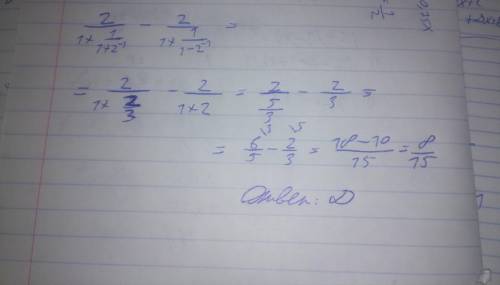 2/(1+1/(1+2⁻¹)) - 2/(1+1/(1-2⁻¹)) =
= 2/(1+2/3) - 2/(1+2) = 2/(5/3) - 2/3 =
= 6/5 - 2/3 = (18-10)/15 = 8/15
Ответ: D